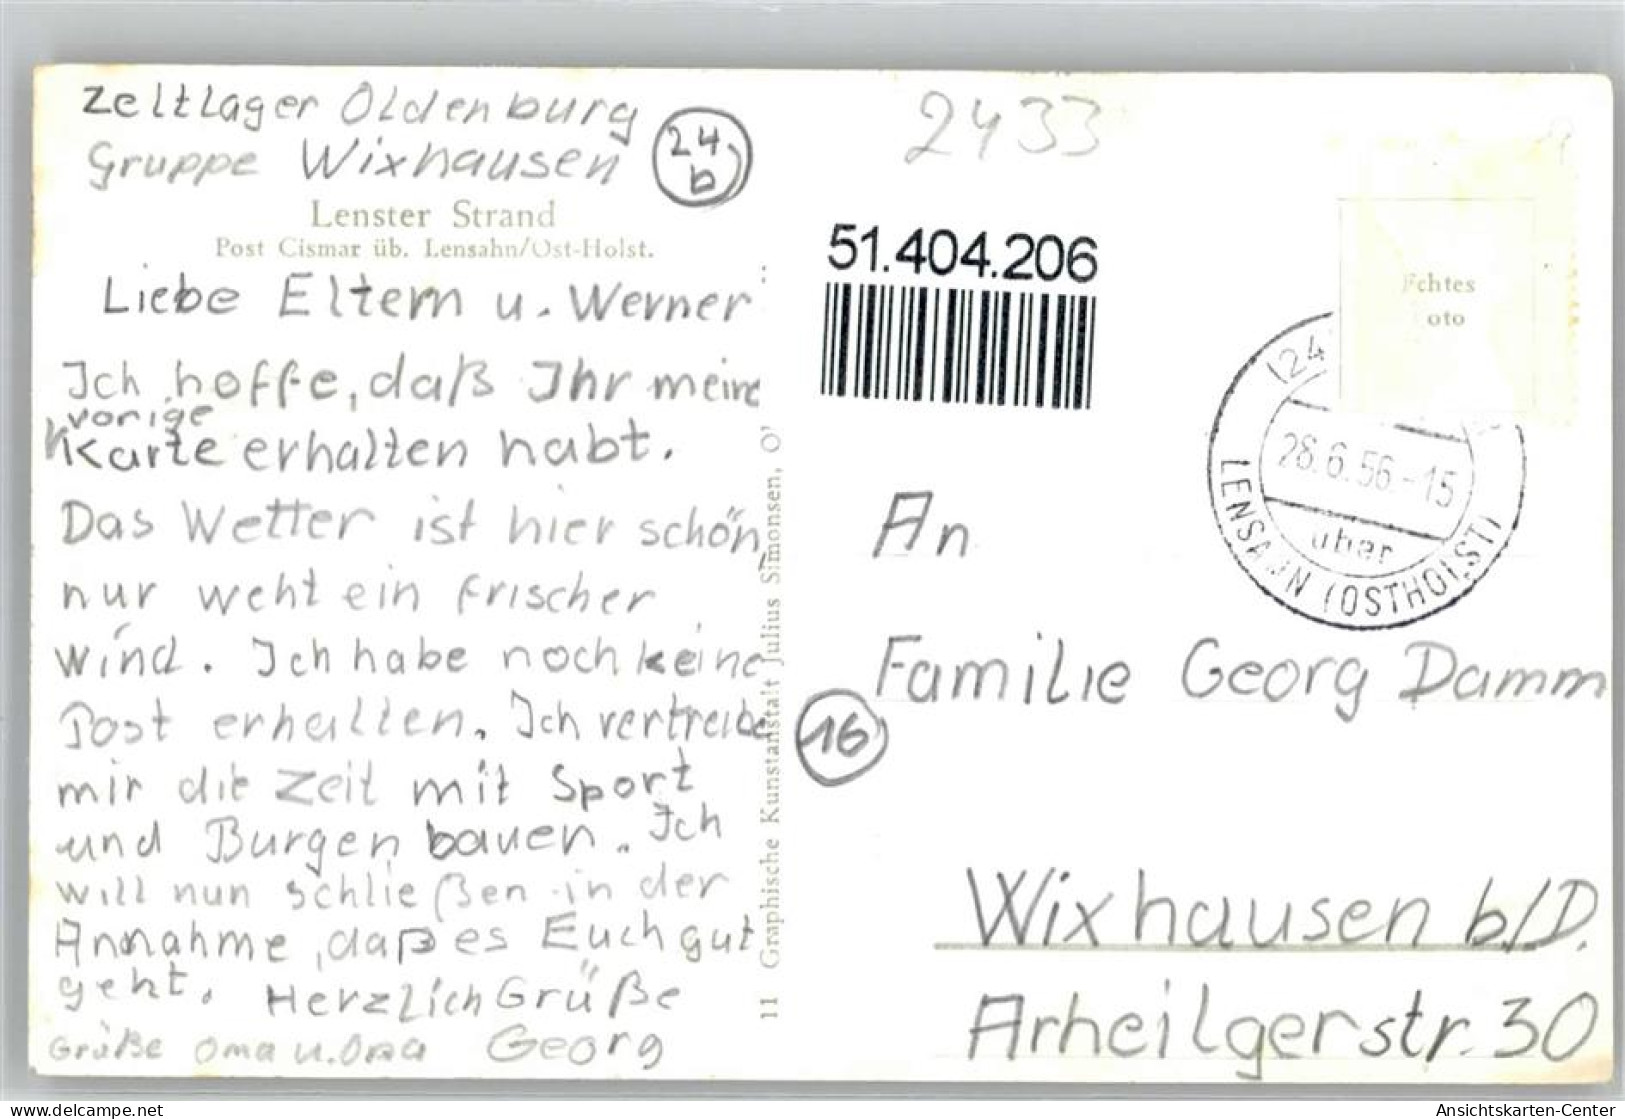 Zeltlager Oldenburg
Gruppe Wixhausen
24
b
Lenster Strand
Post Cismar üb. Lensahn/Ost-Holst.
Liebe Eltern u. Werner
Ich hoffe, daß Ihr meine
vorige
Karte erhalten habt.
Das Wetter ist hier schön,
nur weht ein frischer
Wind. Ich habe noch keine
Post erhalten. Ich vertreibe
mir die Zeit mit Sport
und Burgen bauen. Ich
will nun schließen in der
Annahme, daß es Euch gut
geht. Herzlich Grüße
Grüße Oma u. Opa Georg
11 Graphische Kunstanstalt Julius Simonsen, O
2433
51.404.206
Echtes
oto
(24
28.6.56.-15
über
LENSAHN (OSTHOLST)
An
Familie Georg Damm
16
Wixhausen b/D.
Arheilgerstr. 30
www.delcampe.net
Ansichtskarten-Center